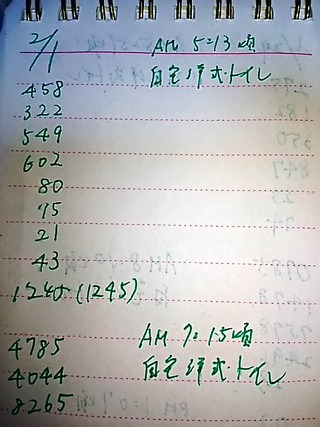 2/1 AM 5:13頃
自宅洋式トイレ
458
322
549
602
80
75
21
43
1245 (1245)
AM 7:15頃
4785
自宅洋式トイレ
4044
8265